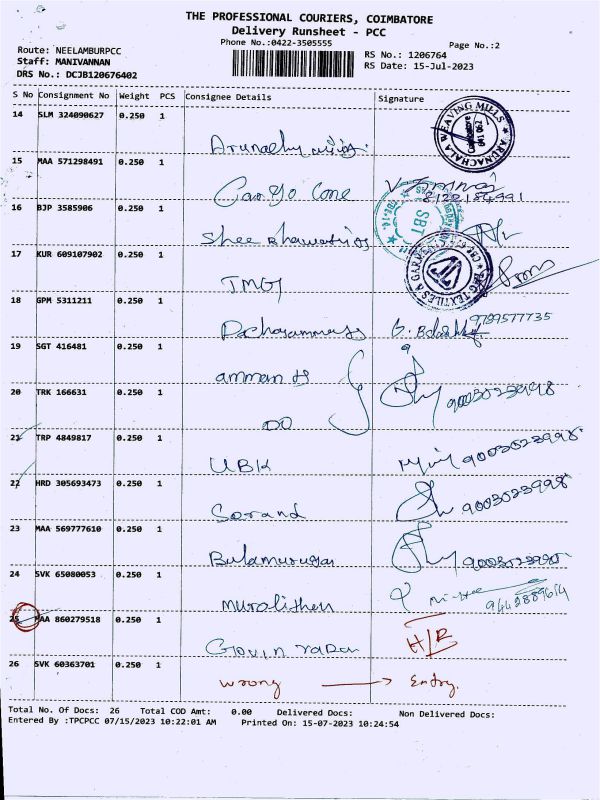 THE PROFESSIONAL COURIERS, COIMBATORE
Delivery Runsheet - PCC
Phone No.:0422-3505555
Page No.:2
Route: NEELAMBURPCC
Staff: MANIVANNAN
DRS No.: DCJB120676402
RS No.: 1206764
RS Date: 15-Jul-2023
S No Consignment No Weight PCS Consignee Details Signature
14 SLM 324090627 0.250 1
ARUNACHALA WEAVING MILLS Coimbatore 641 062
15 MAA 571298491 0.250 1
Cargo Cone
16 BJP 3585906 0.250 1
SBT
Shee
17 KUR 609107902 0.250 1
TMG
18 GPM 5311211 0.250 1
9789577735
19 SGT 416481 0.250 1
amman
20 TRK 166631 0.250 1
9003023998
21 TRP 4849817 0.250 1
UBK 9003023998
22 HRD 305693473 0.250 1
Sorand 9003023998
23 MAA 569777610 0.250 1
Balamurugan 9003023998
24 SVK 65080053 0.250 1
25 MAA 860279518 0.250 1
H/R
26 SVK 60363701 0.250 1
wrong → Entry.
Total No. Of Docs: 26 Total COD Amt: 0.00 Delivered Docs: Non Delivered Docs:
Entered By :TPCPCC 07/15/2023 10:22:01 AM Printed On: 15-07-2023 10:24:54